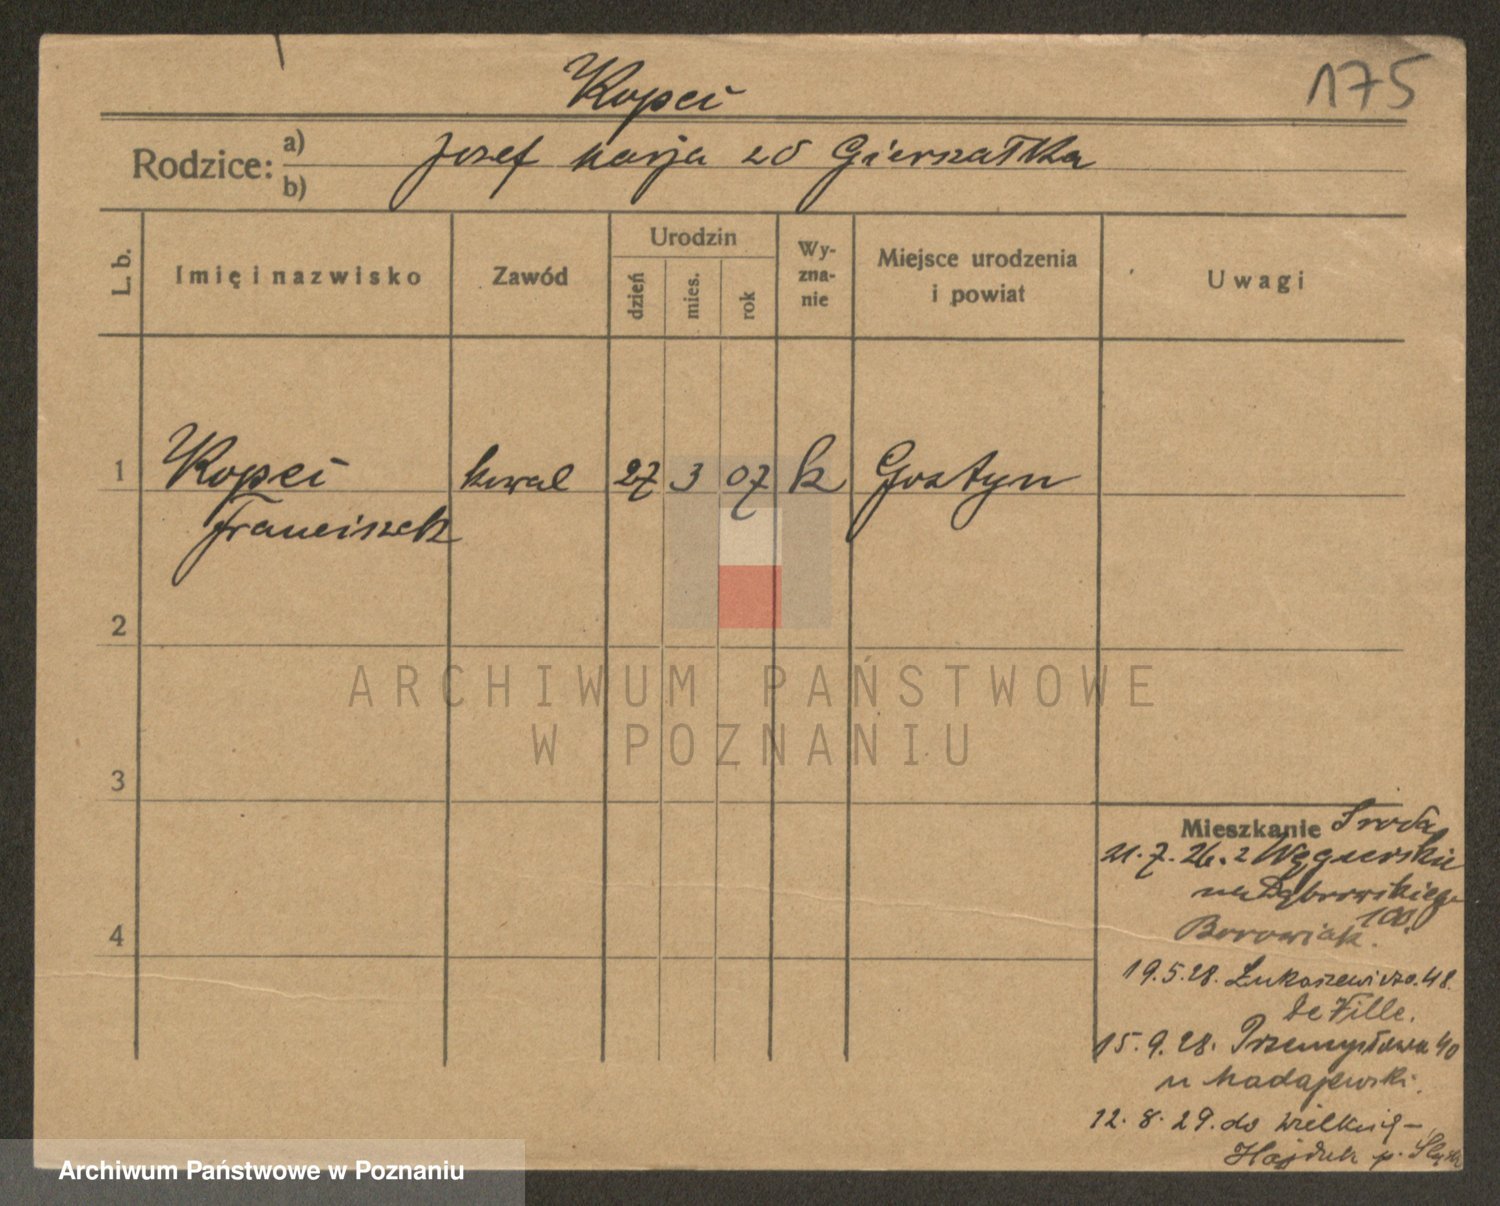 Kopeć
175
Rodzice: a) Josef Marja zd Gierszałka
b)
L. b.
Imię i nazwisko
Zawód
Urodzin
dzień
mies.
rok
Wy-
zna-
nie
Miejsce urodzenia
i powiat
Uwagi
1 Kopeć kowal 27 3 07 k Gostyn
Franciszek
2
ARCHIWUM PAŃSTWOWE
W POZNANIU
3
Mieszkanie Środa
21.7.26. z Węgierskie
na Dąbrowskiego
100
Borowiak.
4
19.5.28. Łukaszewicza.48.
De Fille.
15.9.28. Przemysłowa 40
u Madajewski.
12.8.29. do Wielkich-
Hajduk p. Śląsk
Archiwum Państwowe w Poznaniu